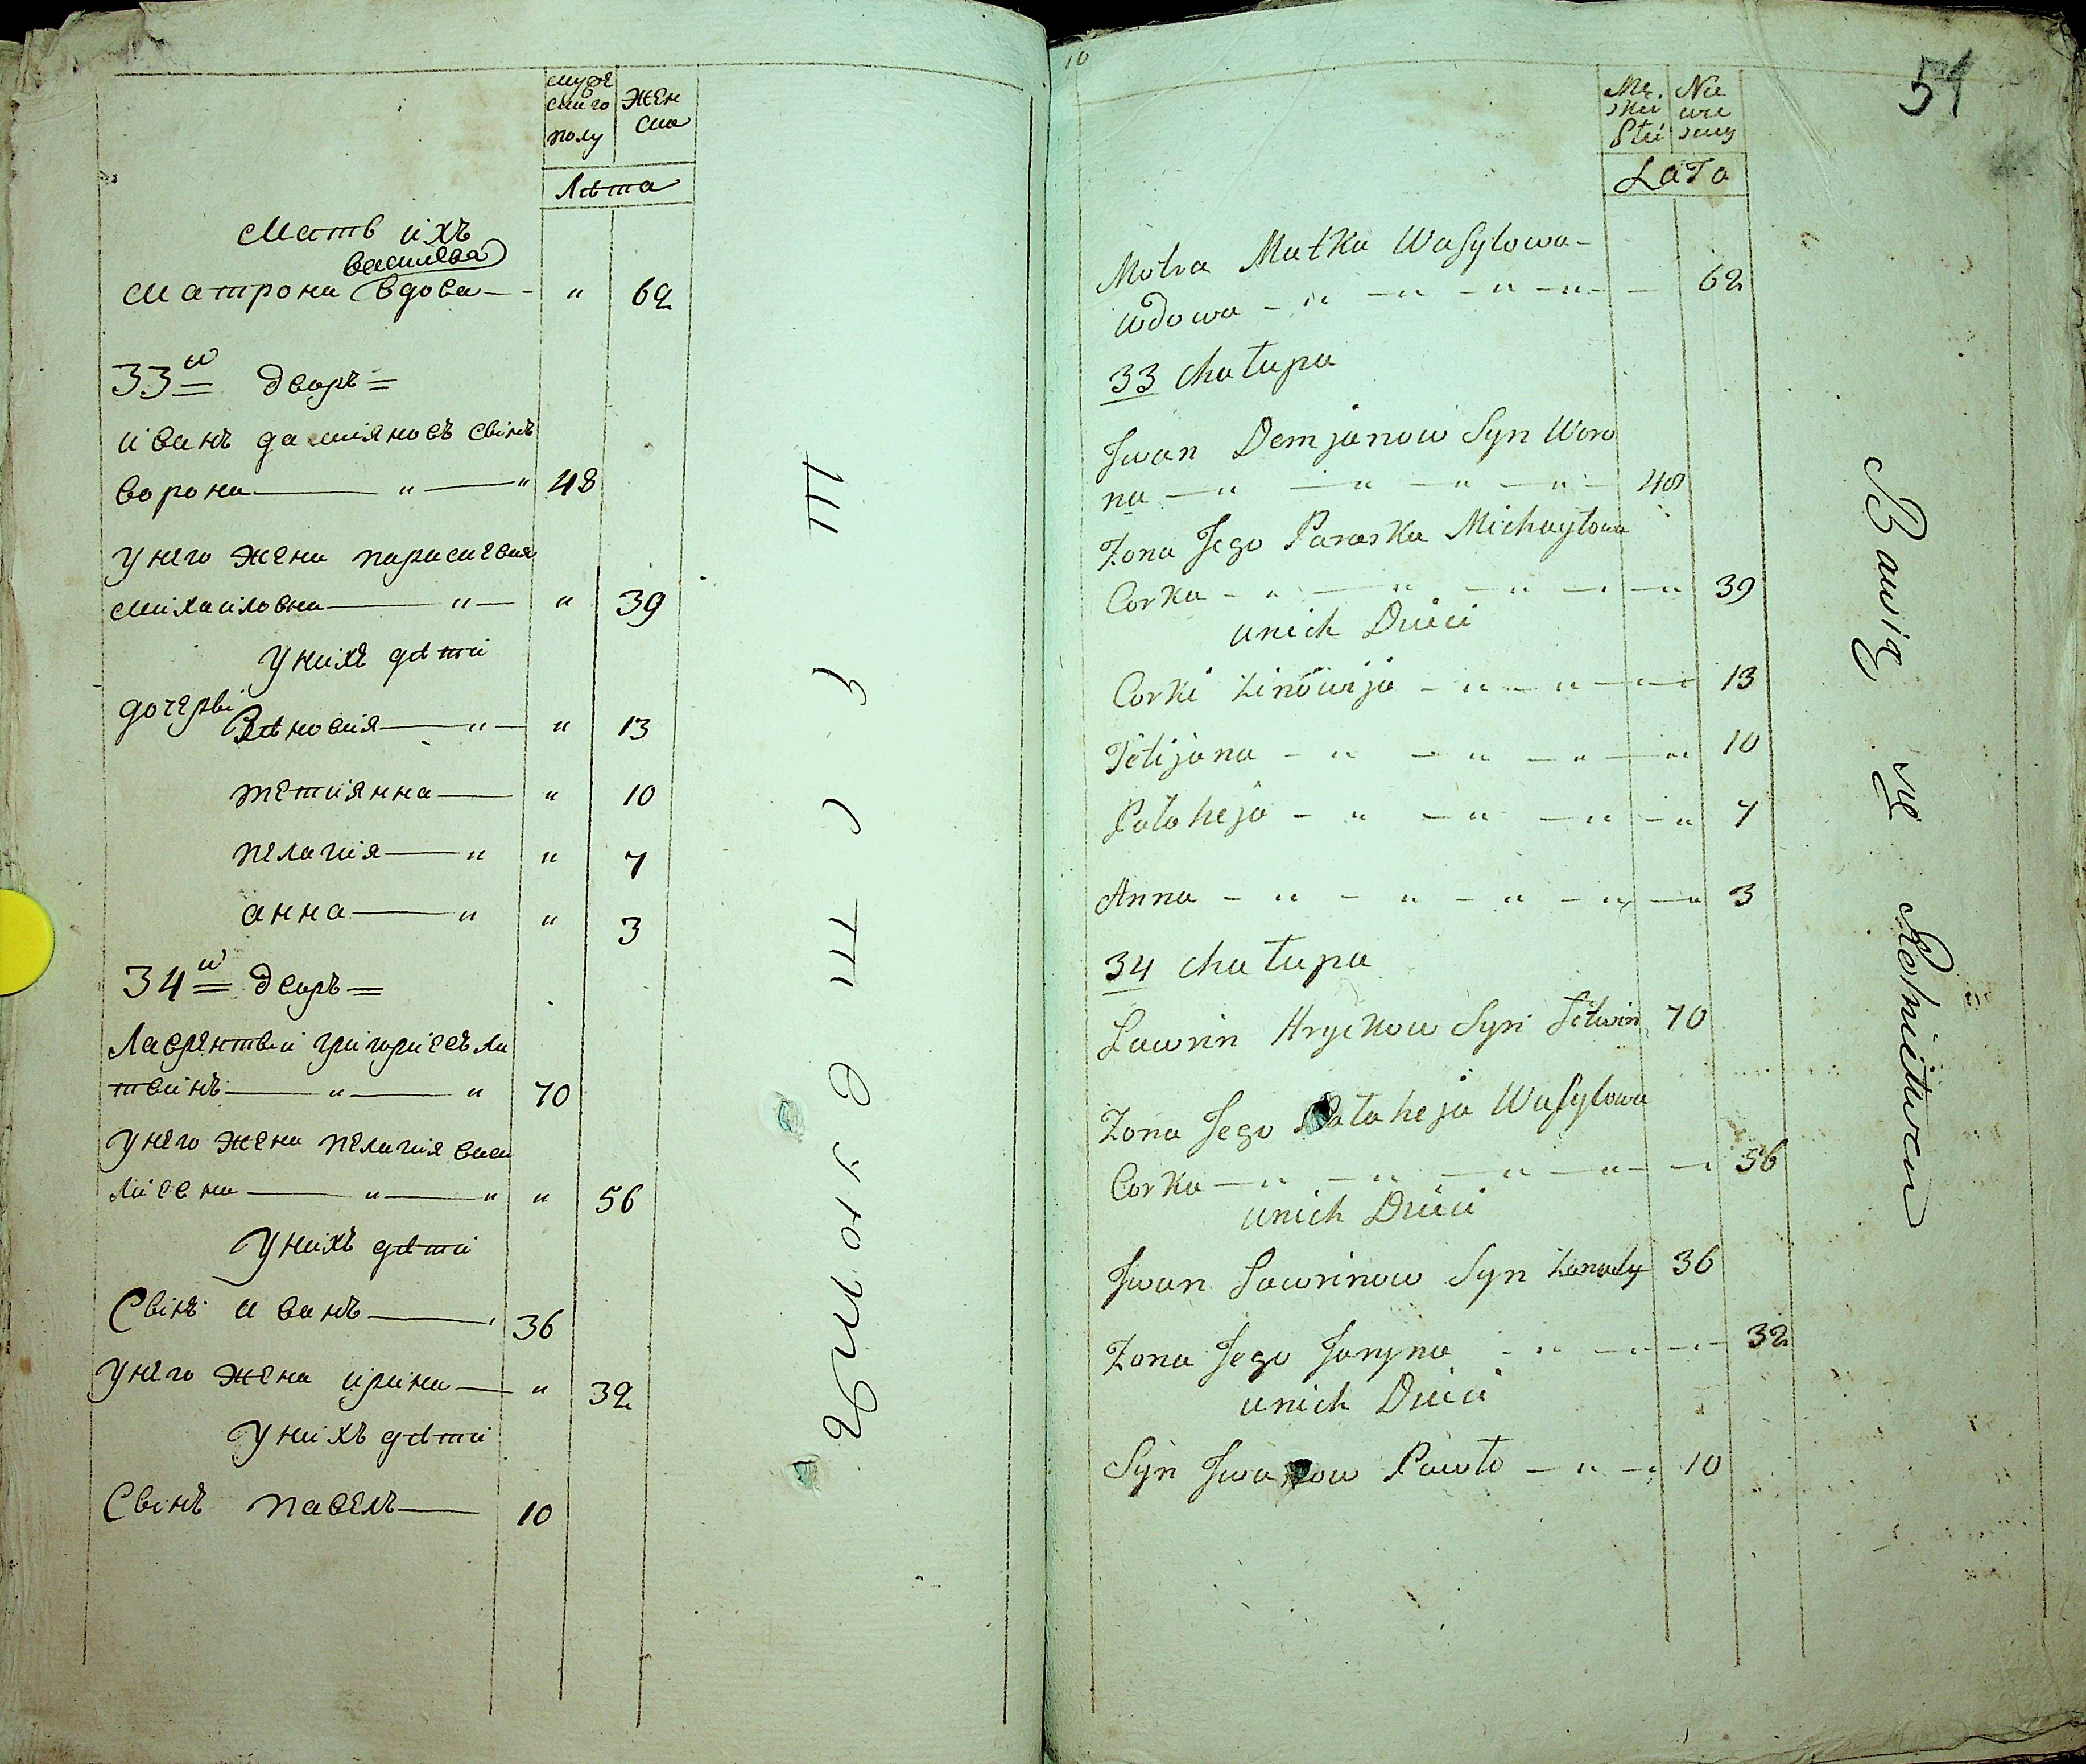 мужескаго полу
женска
Лѣта
Мать ихъ
василева
Матрона вдова — — " 62
33й дворъ =
иванъ дамияновъ сынъ
ворона — " — " 48
у него жена параскевия
михаиловна — " — " 39
у нихъ дѣти
дочеры
Зѣновия — " — " 13
тетиянна — " 10
пелагия — " " 7
анна — " " 3
34й дворъ =
Лаврентьи григориевъ ли
твинъ — " — " 70
у него жена пелагия васи
лиевна — " — " " 56
у нихъ дѣти
Сынъ иванъ — 36
у него жена ирина — " 32
у нихъ дѣти
Сынъ павелъ — 10
10
54
LaTa
Motra Matka Wasylowa -
wdowa - " — " — " — " — 62
33 chałupa
Jwan Demjanow Syn Woro
na — " — " — " — " — 48
Zona Jego Paraska Michayłowa
Corka - " — " — " — " — " 39
unich Dzieci
Corki Zinowija — " — " — " 13
Tetijana - " — " — " — " 10
Pałaheja - " — " — " — " 7
Anna — " — " — " — " — " 3
34 chałupa
Ławrin Hryckow Syn Litwin 70
Zona Jego Pałaheja Wasylowa
Corka — " — " — " — " — 56
unich Dzieci
Jwan Ławrinow Syn 36
Zona Jego Jaryna - " — " — 32
unich Dzieci
Syn Jwanow Pawło — " — 10
Bawią się Rolnictwem